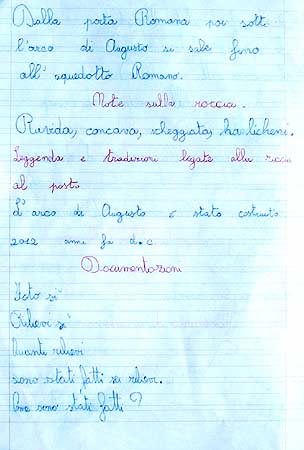 Dalla porta Romana poi sotto
l'arco di Augusto si sale fino
all'aquedotto Romano.
Note sulla roccia.
Ruvida, concava, scheggiata, ha licheni.
Leggenda e tradizioni legate alla roccia
al posto
L'arco di Augusto è stato costruito
2012 anni fa d.c.
Documentazioni
Foto sì
Rilievi sì
Quanti rilievi
sono stati fatti sei rilievi.
Come sono stati fatti?